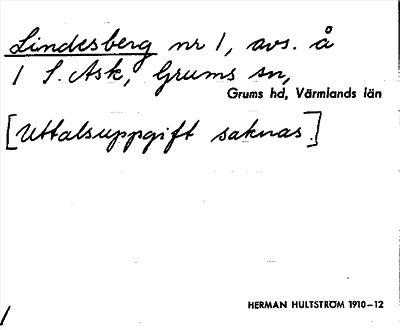 Lindesberg nr 1, avs. å
1 S. Ask, Grums sn,
Grums hd, Värmlands län
[Uttalsuppgift saknas.]
HERMAN HULTSTRÖM 1910–12
/